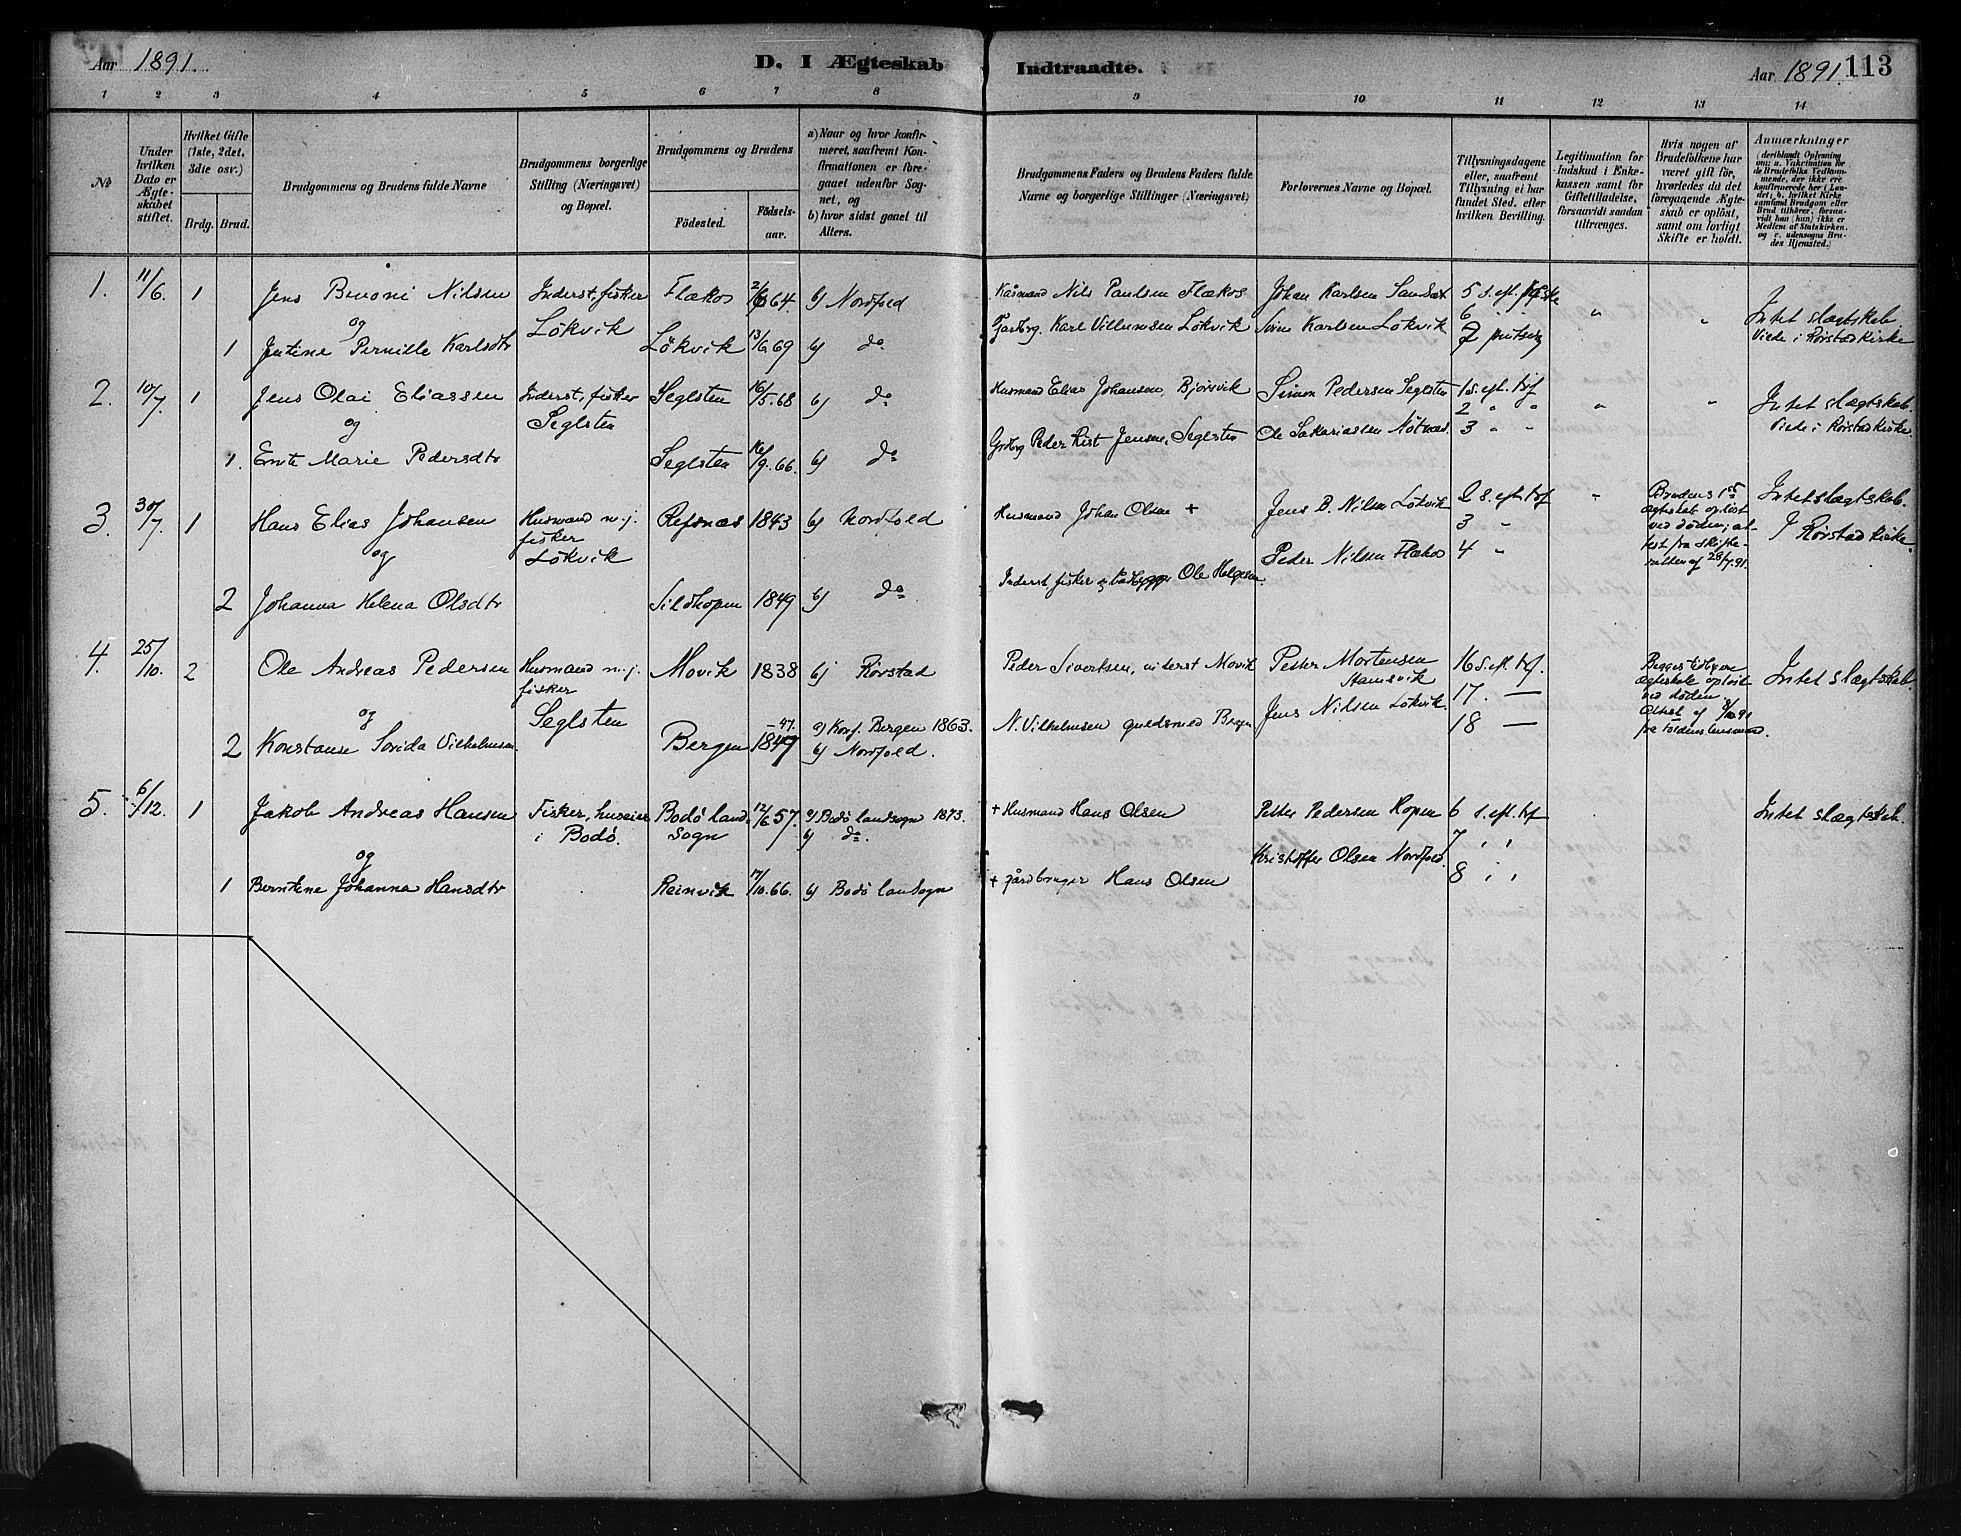 Aar 1891.
D. I Ægteskab Indtraadte.
Aar 1891. 113
1 2 3 4 5 6 7 8 9 10 11 12 13 14
No
Under hvilken Dato er Ægteskabet stiftet.
Hvilket Gifte (1ste, 2det, 3die osv.)
Brdg. Brud.
Brudgommens og Brudens fulde Navne
Brudgommens borgerlige Stilling (Næringsvei) og Bopæl.
Brudgommens og Brudens
Fødested.
Fødselsaar.
a) Naar og hvor konfirmeret, saafremt Konfirmationen er foregaaet udenfor Sognet, og
b) hvor sidst gaaet til Alters.
Brudgommens Faders og Brudens Faders fulde Navne og borgerlige Stillinger (Næringsvei)
Forlovernes Navne og Bopæl.
Tillysningsdagene eller, saafremt Tillysning ei har fundet Sted, efter hvilken Bevilling.
Legitimation for Indskud i Enkekassen samt for Giftetilladelse, forsaavidt saadan tiltrænges.
Hvis nogen af Brudefolkene har været gift før, hvorledes da det foregaaende Ægteskab er opløst, samt om lovligt Skifte er holdt.
Anmærkninger
(deriblandt Oplysning om: a. Vakcination for de Brudefolks Vedkommende, der ikke ere konfirmerede her i Landet, b. hvilket Kirkesamfund Brudgom eller Brud tilhører, forsaavidt han (hun) ikke er Medlem af Statskirken, og c. udensogns Brudes Hjemsted.)
1. 11/6. 1 Jens Benoni Nilsen Inderst, fisker Flækos 64. b) Nordfold Nils Paulsen Flækos Johan Karlsen 5 s. eft.
og Løkvik 6 " " Intet slægtskab
1 Jentine Pernille Karlsdtr Løkvik 13/6 69 b) do Karl Villumsen Løkvik Karlsen Løkvik 7 Viede i Rørstad kirke
2. 10/7. 1 Jens Olai Eliassen Inderst, fisker Seglsten 16/5. 68 b) do Husmand Elias Johansen, Bjørsvik Simon Pedersen Seglsten 1 s. eft. trf " " Intet slægtskab.
og Seglsten 2 " " Viede i Rørstad kirke.
1. Marie Pedersdtr Seglsten 16/9. 66. b) do Peder Jensen, Seglsten Ole Sakariassen 3 " "
3. 30/7. 1 Hans Elias Johansen Husmand m. j. fisker Refsnes 1843 b) Nordfold Husmand Johan Olsen + Jens B. Nilsen Løkvik 2 s. eft. trf " Brudens 1ste ægteskab opløst ved døden; attest fra skifteretten af 28/7.91. Intet slægtskab.
og Løkvik Peder Nilsen Flækos 3 " I Rørstad kirke.
2 Johanna Helena Olsdtr Sildhopen 1849 b) do Inderst fisker Ole Helgesen 4 "
4. 25/10. 2 Ole Andreas Pedersen Husmand m. j. fisker Movik 1838 b) Rørstad Peder Sivertsen, Movik Petter Mortensen 16 s. eft. trf. Begges tidligere ægteskab opløst ved døden. Attest af fra Foldens lensmand. Intet slægtskab.
og Seglsten Jens Nilsen Løkvik 17. —
2 Konstanse Vilhelmsen Bergen 1847 a) Konf. Bergen 1863. N. Vilhelmsen guldsmed Bergen 18 —
b) Nordfold.
5. 6/12. 1 Jakob Andreas Hansen Fisker, huseier i Bodø. Bodø landsogn 12/6 57. a) Bodø landsogn 1873. + Husmand Hans Olsen Petter Pedersen Hopen 6 s. eft. trf Intet slægtskab.
og b) do. Kristoffer Olsen Nordfold 7 " "
1 Berntine Johanna Hansdtr Reinvik 17/10. 66. b) Bodø landsogn + gårdbruger Hans Olsen 8 " "